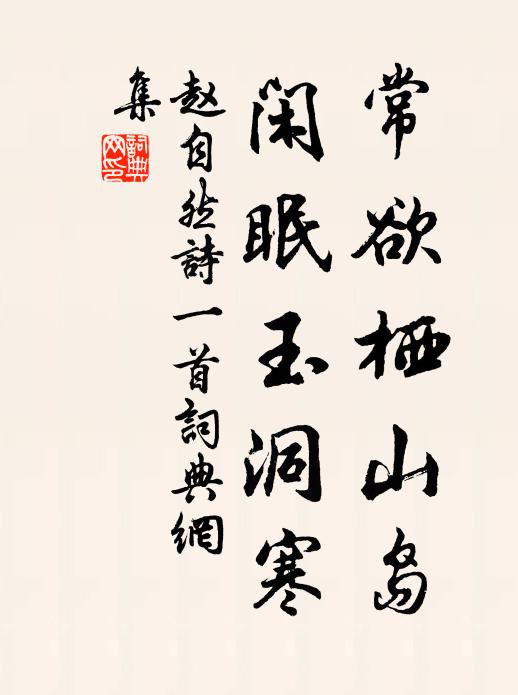 常欲栖山岛
闲眠玉洞寒
赵自然詩一首詞典網
集
詞典
网印